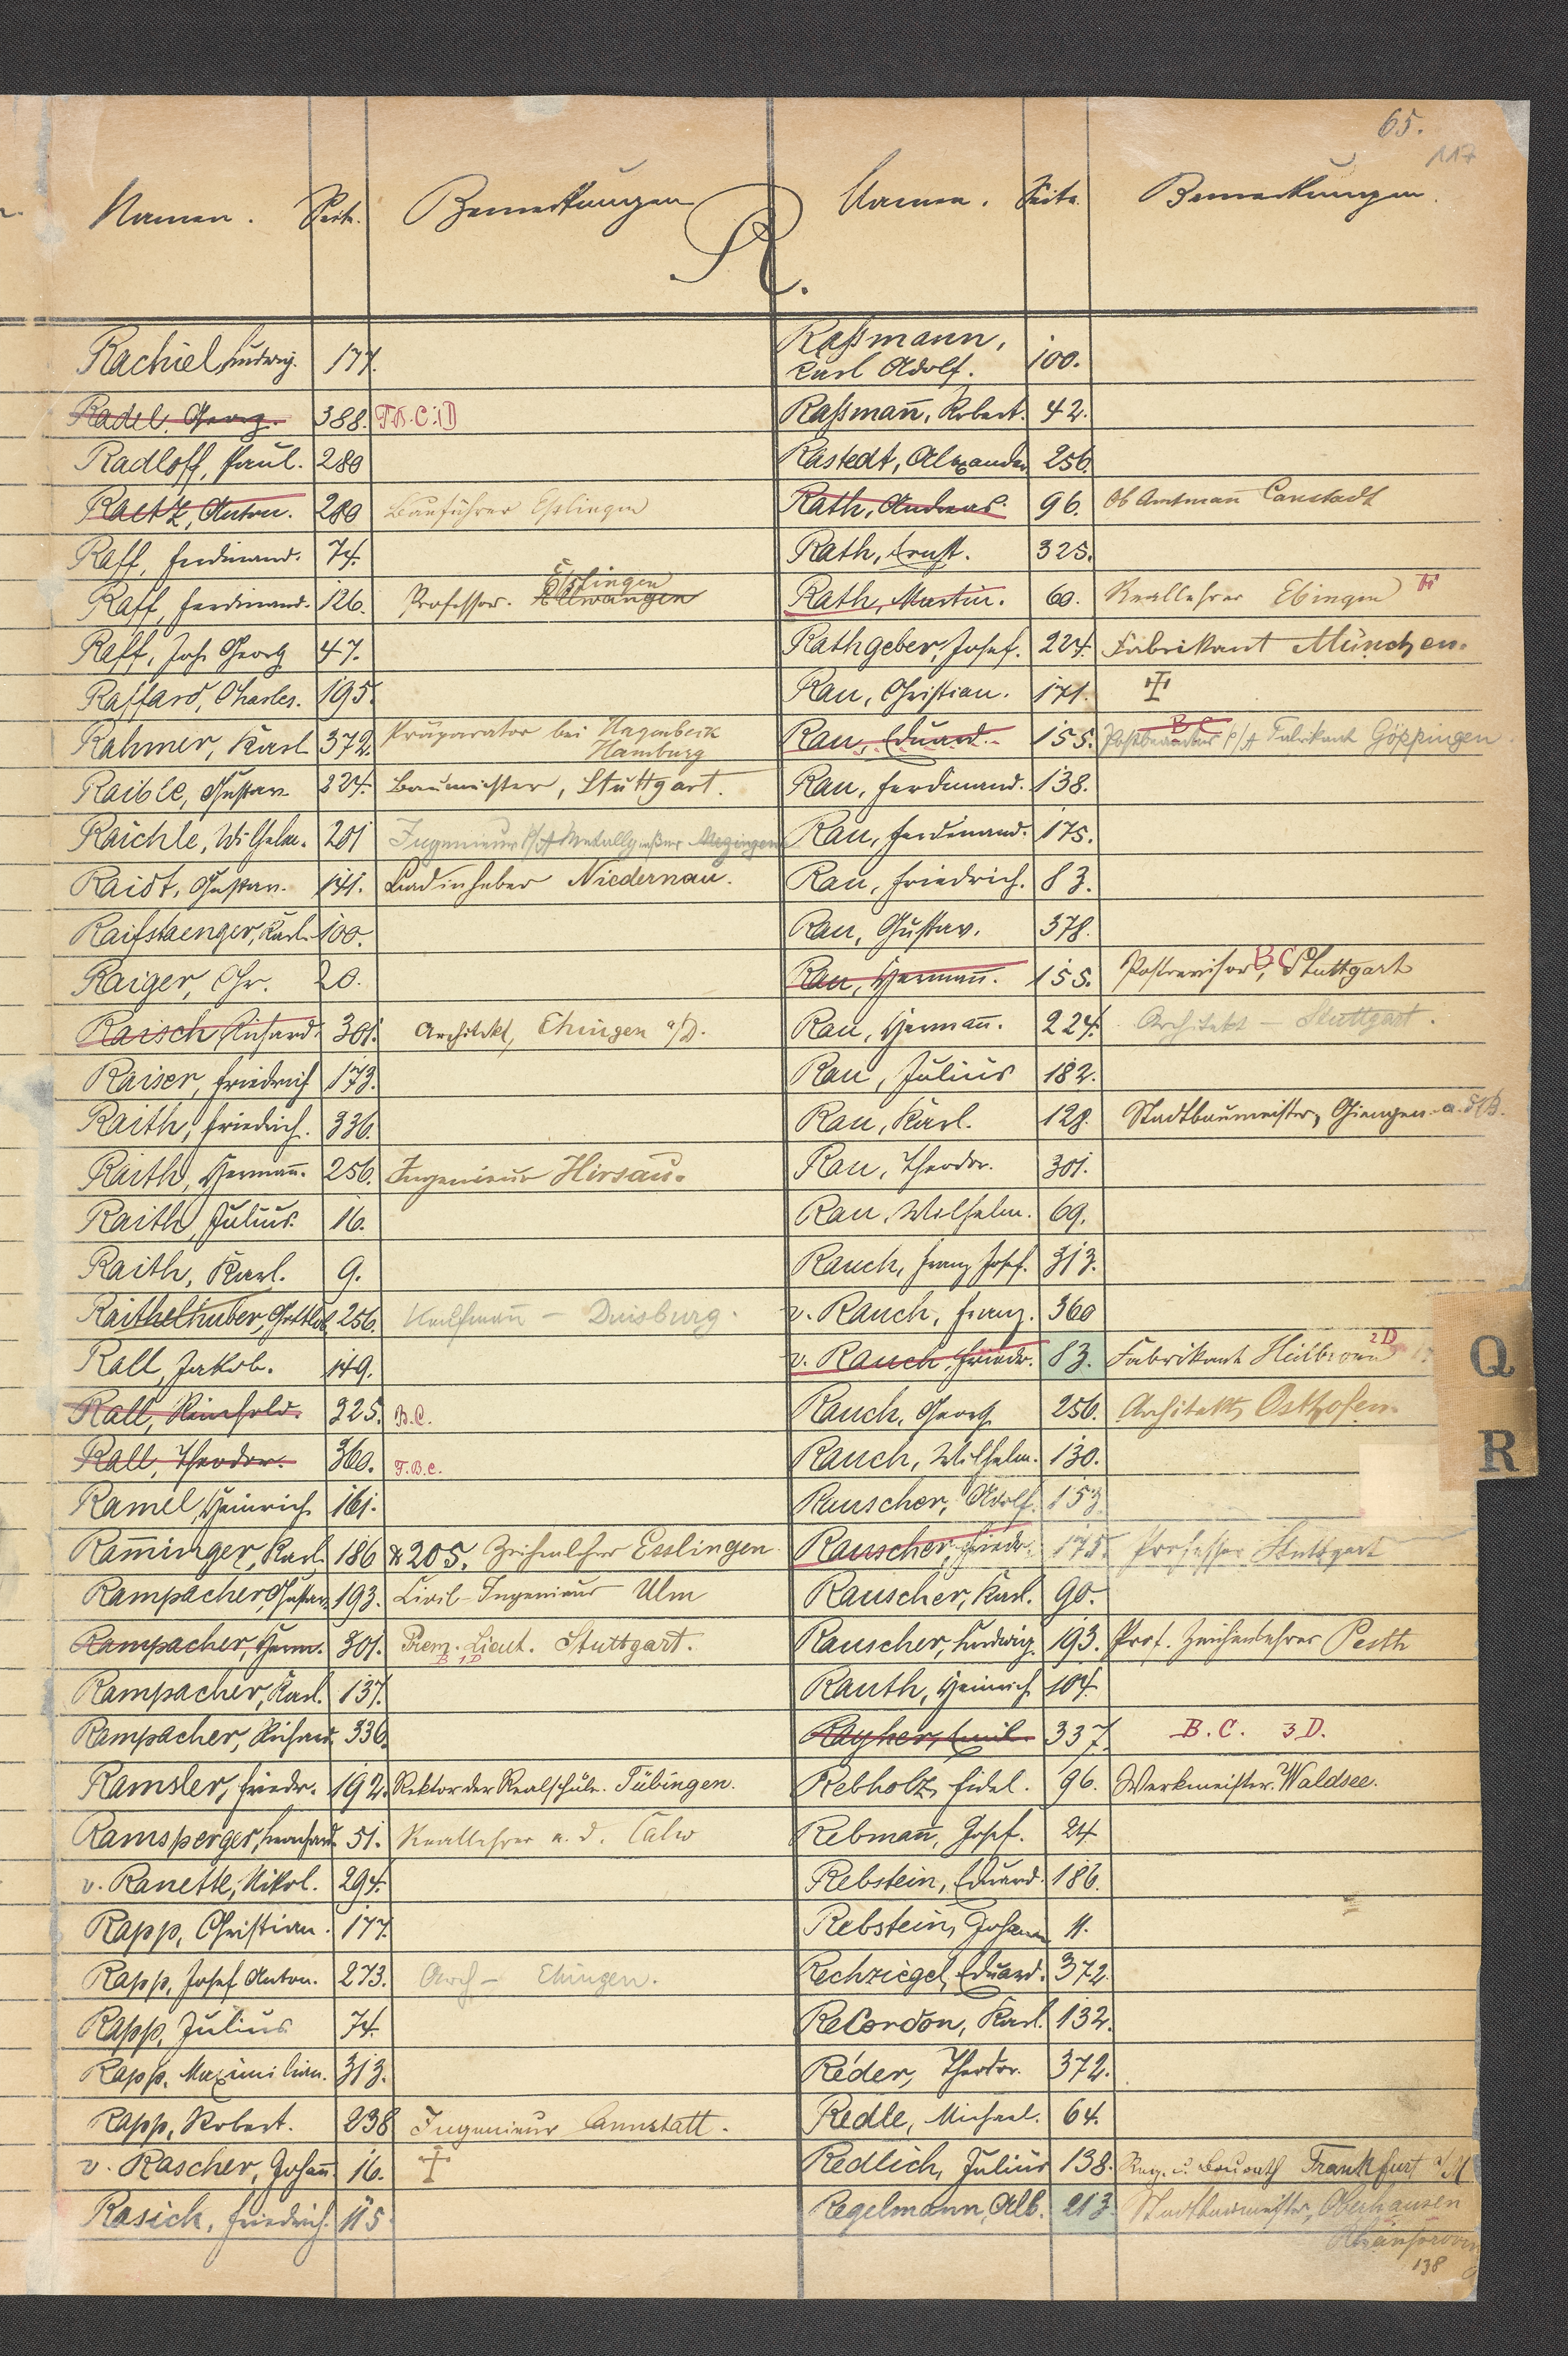 65.
117
Namen. Seite. Bemerkungen
R.
Namen. Seite. Bemerkungen.
Rachiel, Ludwig. 177.
Radel, Georg. 388. T.B.C.1D
Radloff, Paul. 280
Raetz, Anton. 280 Bauführer Esslingen
Raff, Ferdinand. 74.
Raff, Ferdinand. 126. Professor. Ellwangen Esslingen
Raff, Joh. Georg 47.
Raffard, Charles. 195.
Rahmer, Karl 372. Präparator bei Hagenbeck
Hamburg
Raible, Gustav. 224. Baumeister, Stuttgart.
Raichle, Wilhelm. 201 Ingenieur Metzingen
Raidt, Gustav. 141. Badinhaber Niedernau.
Raifstaenger, Karl. 100.
Raiger, Chr. 20.
Raisch, Richard. 301. Architekt, Ehingen a/D.
Raiser, Friedrich 173.
Raith, Friedrich. 336.
Raith, Hermañ. 256. Ingenieur Hirsau.
Raith, Julius. 16.
Raith, Karl. 9.
Raithelhuber, Gottlob 256. Kaufmañ – Duisburg.
Rall, Jakob. 149.
Rall, Reinhold. 325. B.C.
Rall, Theodor. 360. T.B.C.
Ramel, Heinrich 161.
Ram̅inger, Karl. 186 & 205. Zeichenlehrer Esslingen
Rampacher, Gustav. 193. Civil-Ingenieur Ulm
Rampacher, Herm. 301. Prem. Lieut. Stuttgart.
B 1D
Rampacher, Karl. 137.
Rampacher, Richard. 336.
Ramsler, Friedr. 192. Rektor der Realschule. Tübingen.
Ramsperger, Leonhard 51. Reallehrer a. D. Calw
v. Ranette, Nikol. 294.
Rapp, Christian. 177.
Rapp, Josef Anton. 273. Arch – Ehingen.
Rapp, Julius 74.
Rapp, Maximilian. 313.
Rapp, Robert. 238 Ingenieur Cannstatt.
v. Rascher, Johañ 16. †
Rasich, Friedrich. 115.
Raßmann,
Carl Adolf. 100.
Raßmañ, Robert. 42.
Rastedt, Alexander 256.
Rath, Andreas. 96. Ob Amtmañ Canstadt
Rath, Ernst. 325.
Rath, Martin. 60. Reallehrer Ebingen
Rathgeber, Josef. 224. Fabrikant München.
Rau, Christian. 171. †
Rau, Eduard. 155. B C Fabrikant Göppingen
Rau, Ferdinand. 138.
Rau, Ferdinand. 175.
Rau, Friedrich. 83.
Rau, Gustav. 378.
Rau, Hermañ. 155. Postrevisor, BC Stuttgart
Rau, Hermañ. 224. Architekt – Stuttgart.
Rau, Julius 182.
Rau, Karl. 128. Stadtbaumeister, Giengen a.
Rau, Theodor. 301.
Rau, Wilhelm. 69.
Rauch, Franz Josef. 313.
v. Rauch, Franz. 360
v. Rauch, Friedr. 83. Fabrikant Heilbronn 2D
Rauch, Georg 256. Architekt, Osthofen.
Rauch, Wilhelm. 130.
Rauscher, Adolf. 153.
Rauscher, Friedr. 175. Professor Stuttgart
Rauscher, Karl. 90.
Rauscher, Ludwig. 193. Prof. Zeichenlehrer Pesth
Rauth, Heinrich 104.
Rayher, Emil. 337. B.C. 3D.
Rebholz, Fidel. 96. Werkmeister. Waldsee.
Rebmañ, Josef. 24
Rebstein, Eduard. 186.
Rebstein, Johann 11.
Rechziegel, Eduard. 372.
ReCordon, Karl. 132.
Réder, Theodor. 372.
Redle, Michael. 64.
Redlich, Julius 138. Reg. u. Baurath Frankfurt a/M
Regelmann, Alb. 213. Stadtbaumeister, Oberhausen
Rheinprovinz
138
Q
R